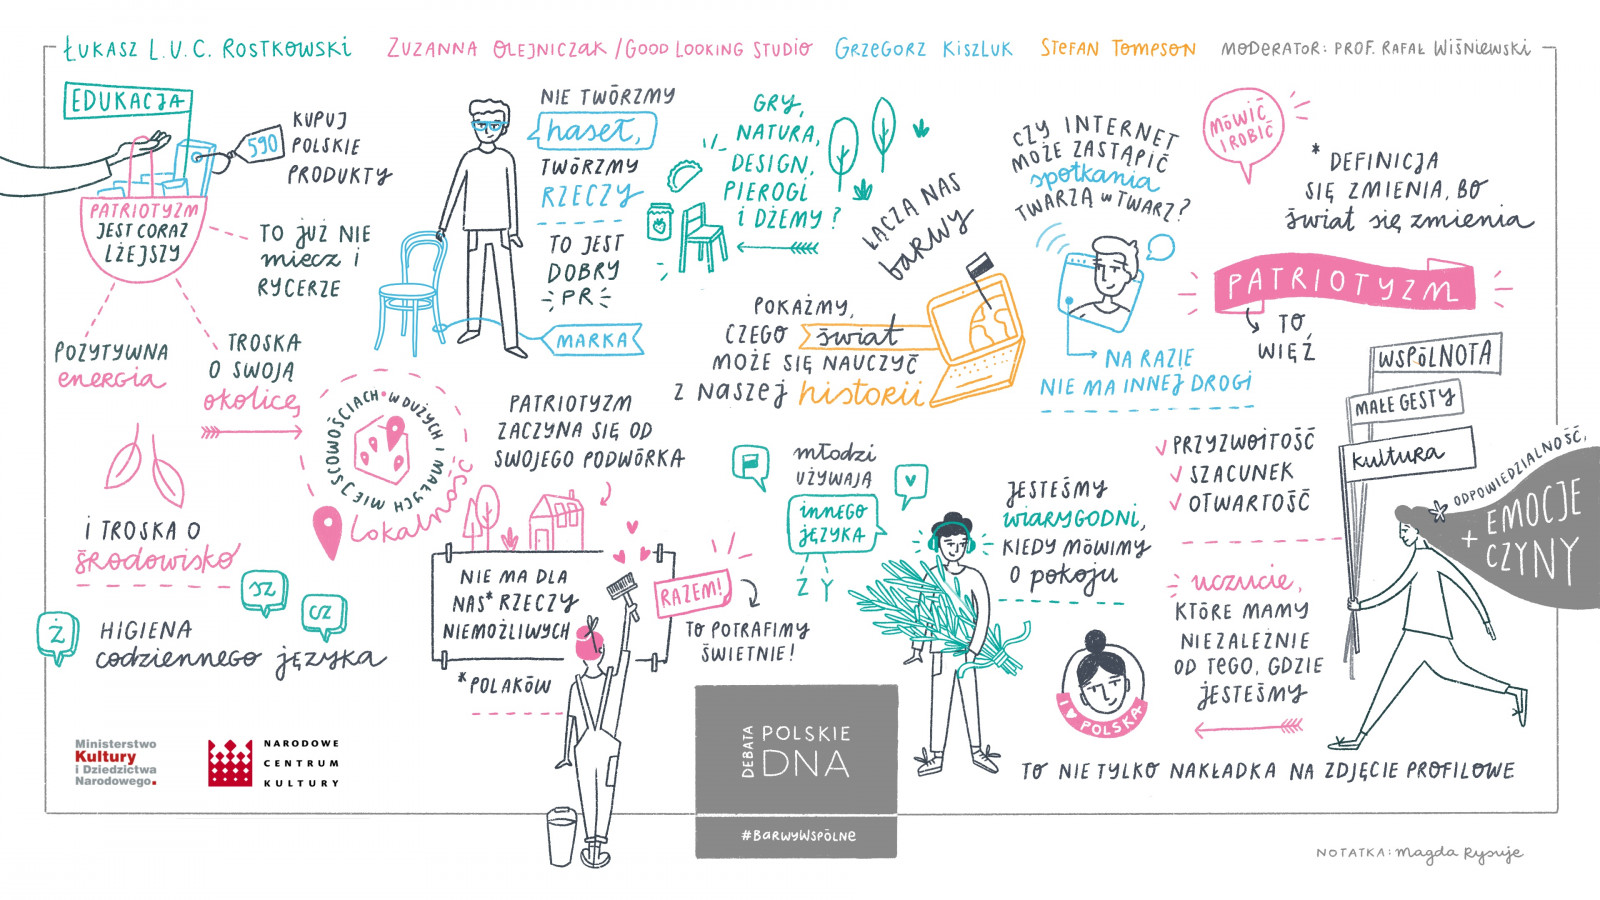 ŁUKASZ L.U.C. ROSTKOWSKI
ZUZANNA OLEJNICZAK / GOOD LOOKING STUDIO
GRZEGORZ KISZLUK
STEFAN TOMPSON
MODERATOR: PROF. RAFAŁ WIŚNIEWSKI
EDUKACJA
590
KUPUJ
POLSKIE
PRODUKTY
PATRIOTYZM
JEST CORAZ
LŻEJSZY
TO JUŻ NIE
miecz i
RYCERZE
POZYTYWNA
energia
TROSKA
O SWOJĄ
okolicę
I TROSKA O
środowisko
W DUŻYCH I MAŁYCH MIEJSCOWOŚCIACH
Lokalność
Ż
SZ
CZ
HIGIENA
codziennego języka
NIE TWÓRZMY
haseł,
TWÓRZMY
RZECZY
TO JEST
DOBRY
PR
MARKA
GRY,
NATURA,
DESIGN,
PIEROGI
I DŻEMY?
ŁĄCZĄ NAS
barwy
POKAŻMY,
CZEGO świat
MOŻE SIĘ NAUCZYĆ
Z NASZEJ historii
PATRIOTYZM
ZACZYNA SIĘ OD
SWOJEGO PODWÓRKA
NIE MA DLA
NAS* RZECZY
NIEMOŻLIWYCH
*POLAKÓW
RAZEM!
TO POTRAFIMY
ŚWIETNIE!
CZY INTERNET
MOŻE ZASTĄPIĆ
spotkania
TWARZĄ W TWARZ?
NA RAZIE
NIE MA INNEJ DROGI
MÓWIĆ
I ROBIĆ
* DEFINICJA
SIĘ ZMIENIA, BO
świat się zmienia
PATRIOTYZM
TO
WIĘŹ
WSPÓLNOTA
MAŁE GESTY
kultura
PRZYZWOITOŚĆ
SZACUNEK
OTWARTOŚĆ
* ODPOWIEDZIALNOŚĆ,
EMOCJE
+ CZYNY
młodzi
UŻYWAJĄ
innego
języka
Z Y
JESTEŚMY
WIARYGODNI,
KIEDY MÓWIMY
O pokoju
uczucie,
KTÓRE MAMY
NIEZALEŻNIE
OD TEGO, GDZIE
JESTEŚMY
I ♥ POLSKA
TO NIE TYLKO NAKŁADKA NA ZDJĘCIE PROFILOWE
Ministerstwo
Kultury
i Dziedzictwa
Narodowego.
NARODOWE
CENTRUM
KULTURY
DEBATA
POLSKIE
DNA
#BARWYWSPÓLNE
NOTATKA: Magda Rysuje